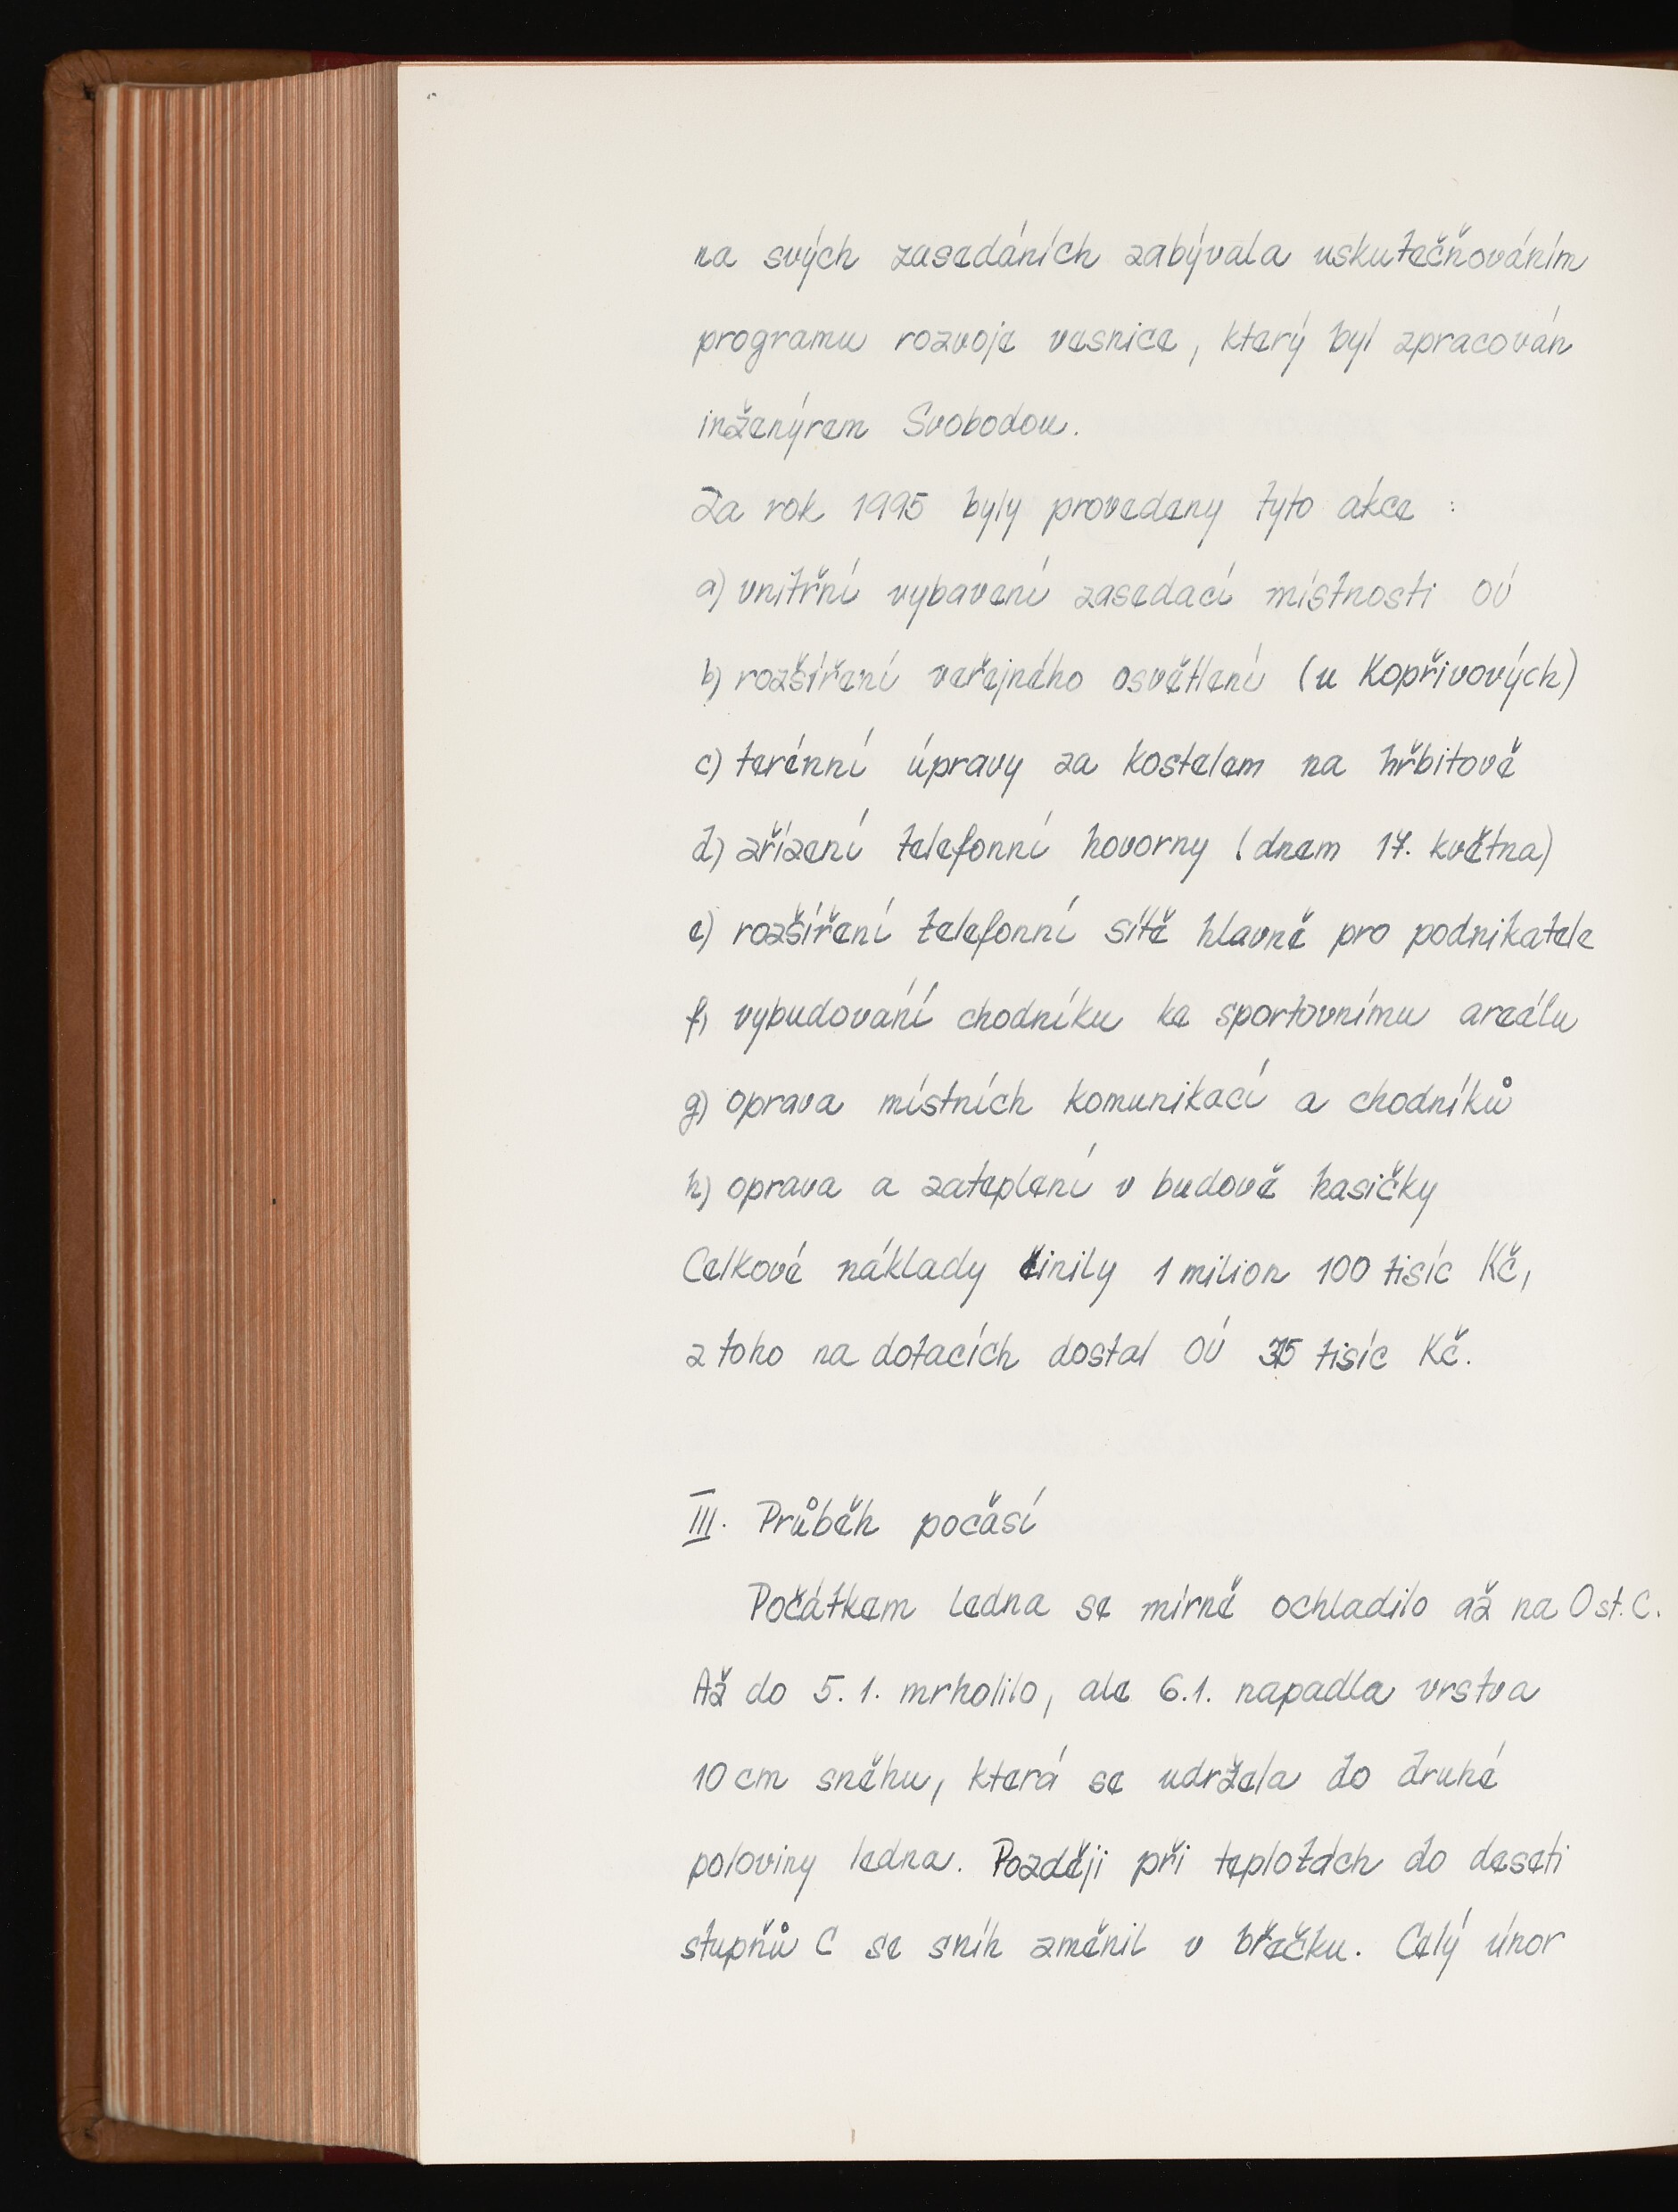 na svých zasedáních zabývala uskutečňováním
programu rozvoje vesnice, který byl zpracován
inženýrem Svobodou.
Za rok 1995 byly provedeny tyto akce :
a) vnitřní vybavení zasedací místnosti OÚ
b) rozšíření veřejného osvětlení (u Kopřivových)
c) terénní úpravy za kostelem na hřbitově
d) zřízení telefonní hovorny (dnem 17. května)
e) rozšíření telefonní sítě hlavně pro podnikatele
f) vybudování chodníku ke sportovnímu areálu
g) oprava místních komunikací a chodníků
h) oprava a zateplení v budově hasičky
Celkové náklady činily 1 milion 100 tisíc Kč,
z toho na dotacích dostal OÚ tisíc Kč.
III. Průběh počasí
Počátkem ledna se mírně ochladilo až na 0 st. C.
Až do 5. 1. mrholilo, ale 6.1. napadla vrstva
10 cm sněhu, která se udržela do druhé
poloviny ledna. Později při teplotách do deseti
stupňů C se sníh změnil v břečku. Celý únor